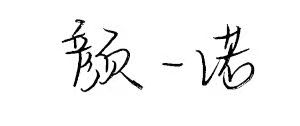 颜一诺